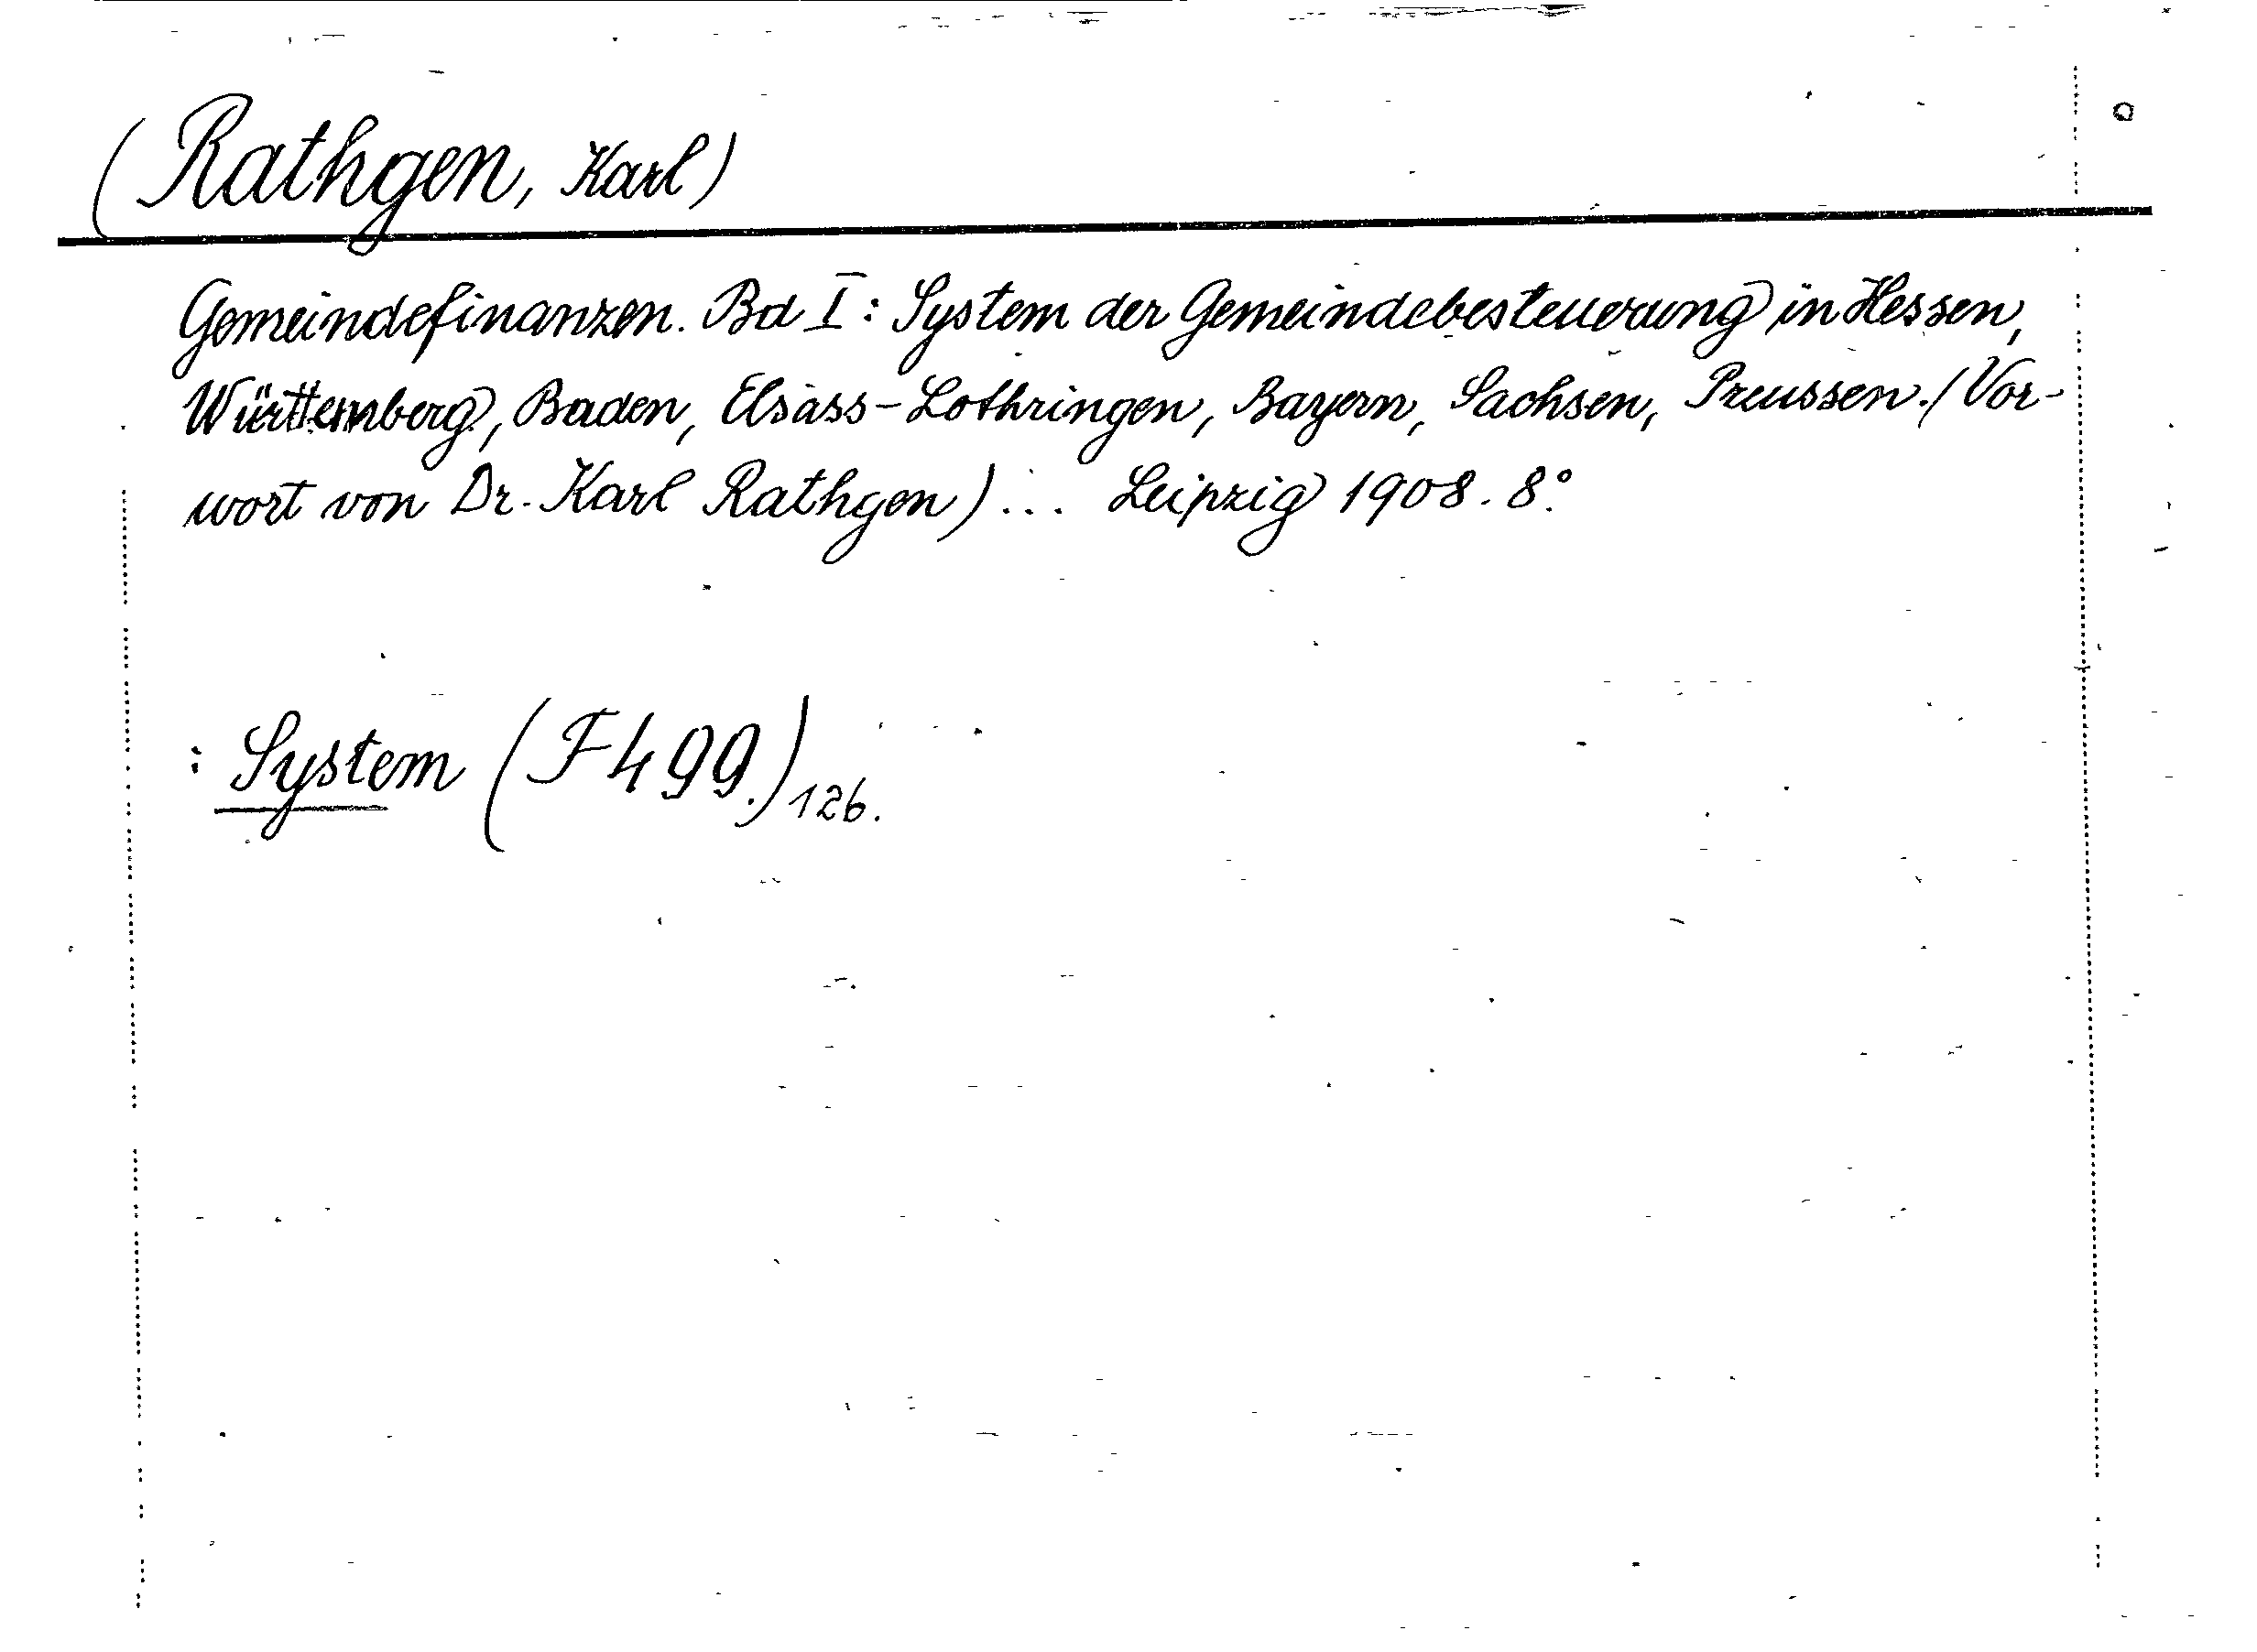 (Rathgen, Karl)
Gemeindefinanzen. Bd I: System der Gemeindebesteuerung in Hessen,
Württemberg, Baden, Elsass-Lothringen, Bayern, Sachsen, Preussen. (Vor-
wort von Dr. Karl Rathgen) ... Leipzig 1908. 8°.
: System (F 499.) 126.